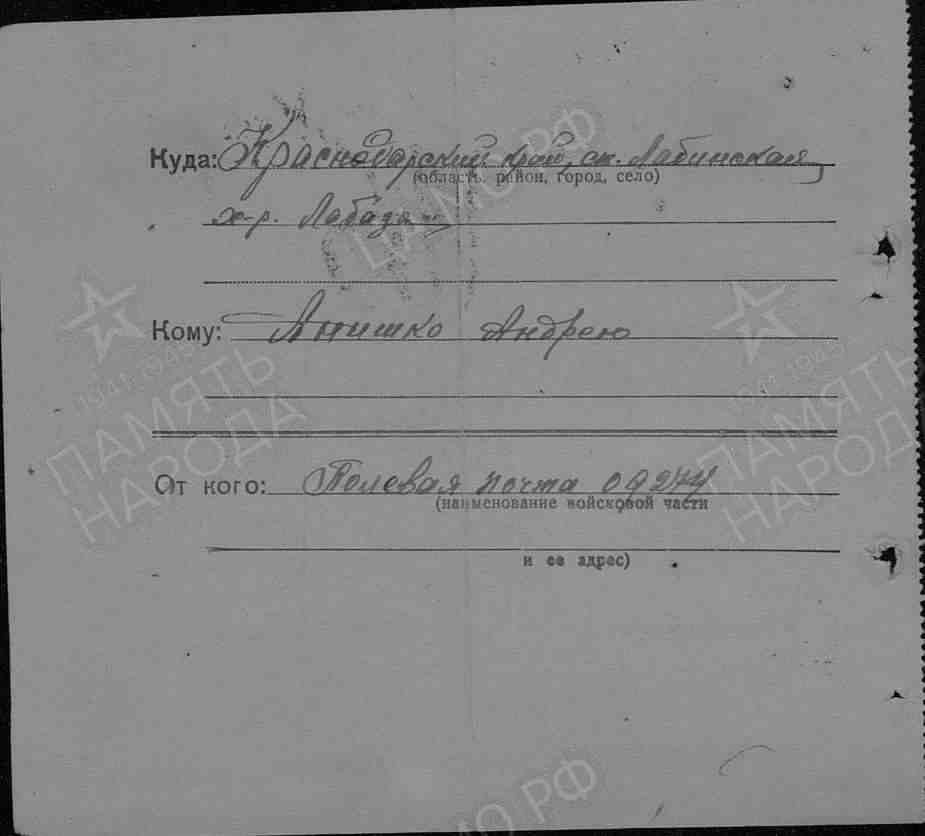 Куда: Краснодарский край, ст. Лабинская
(область, район, город, село)
х-р. Лабода
Кому: Анишко Андрею
От кого: Полевая почта 09274
(наименование войсковой части
и ее адрес)
ЦАМО РФ
1941-1945
ПАМЯТЬ
НАРОДА
1941-1945
ПАМЯТЬ
НАРОДА
ЦАМО РФ